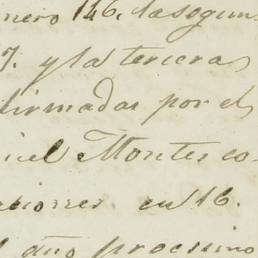 nero 146. la segun
7. y la tercera
firmadas por el
uel Montes co
ciones. en 16.
l año procsimo